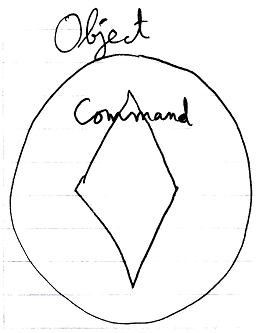 Object
Command